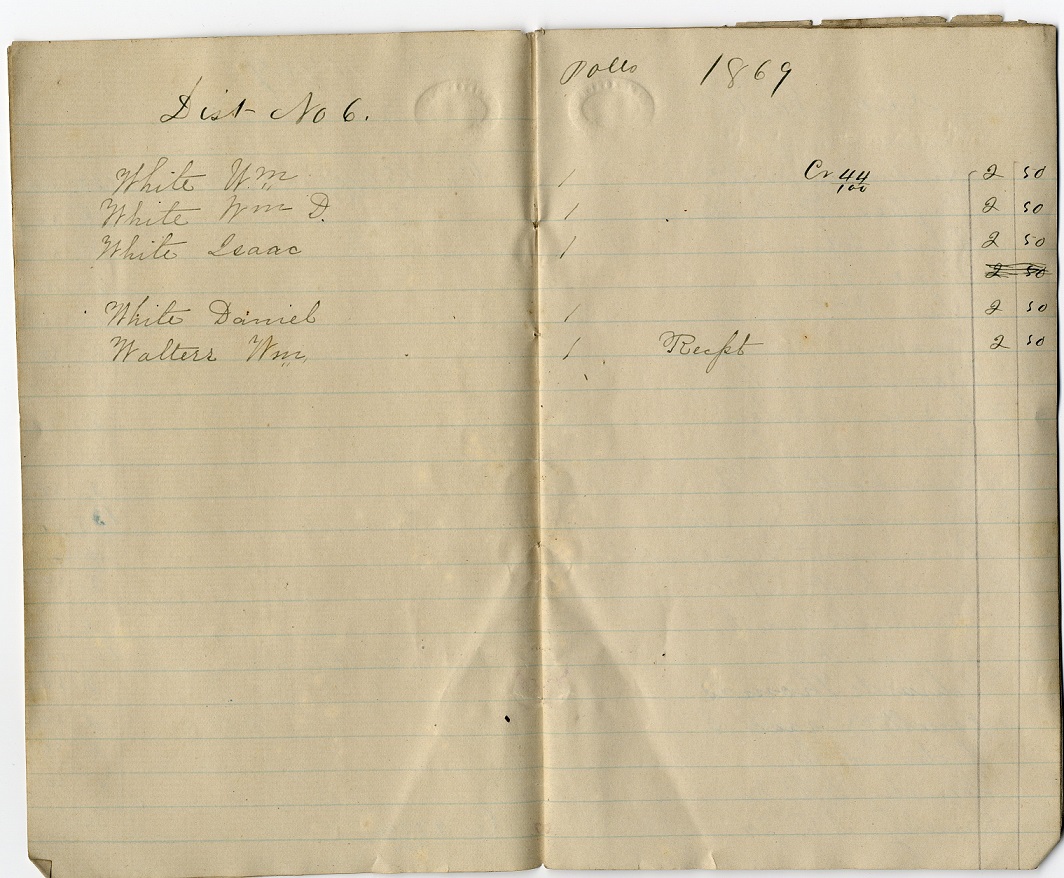 Dist No 6. Polls 1869
White Wm 1 Cr 44/100 2 50
White Wm D. 1 2 50
White Isaac 1 2 50
2 50
White Daniel 1 2 50
Walters Wm 1 Recpt 2 50